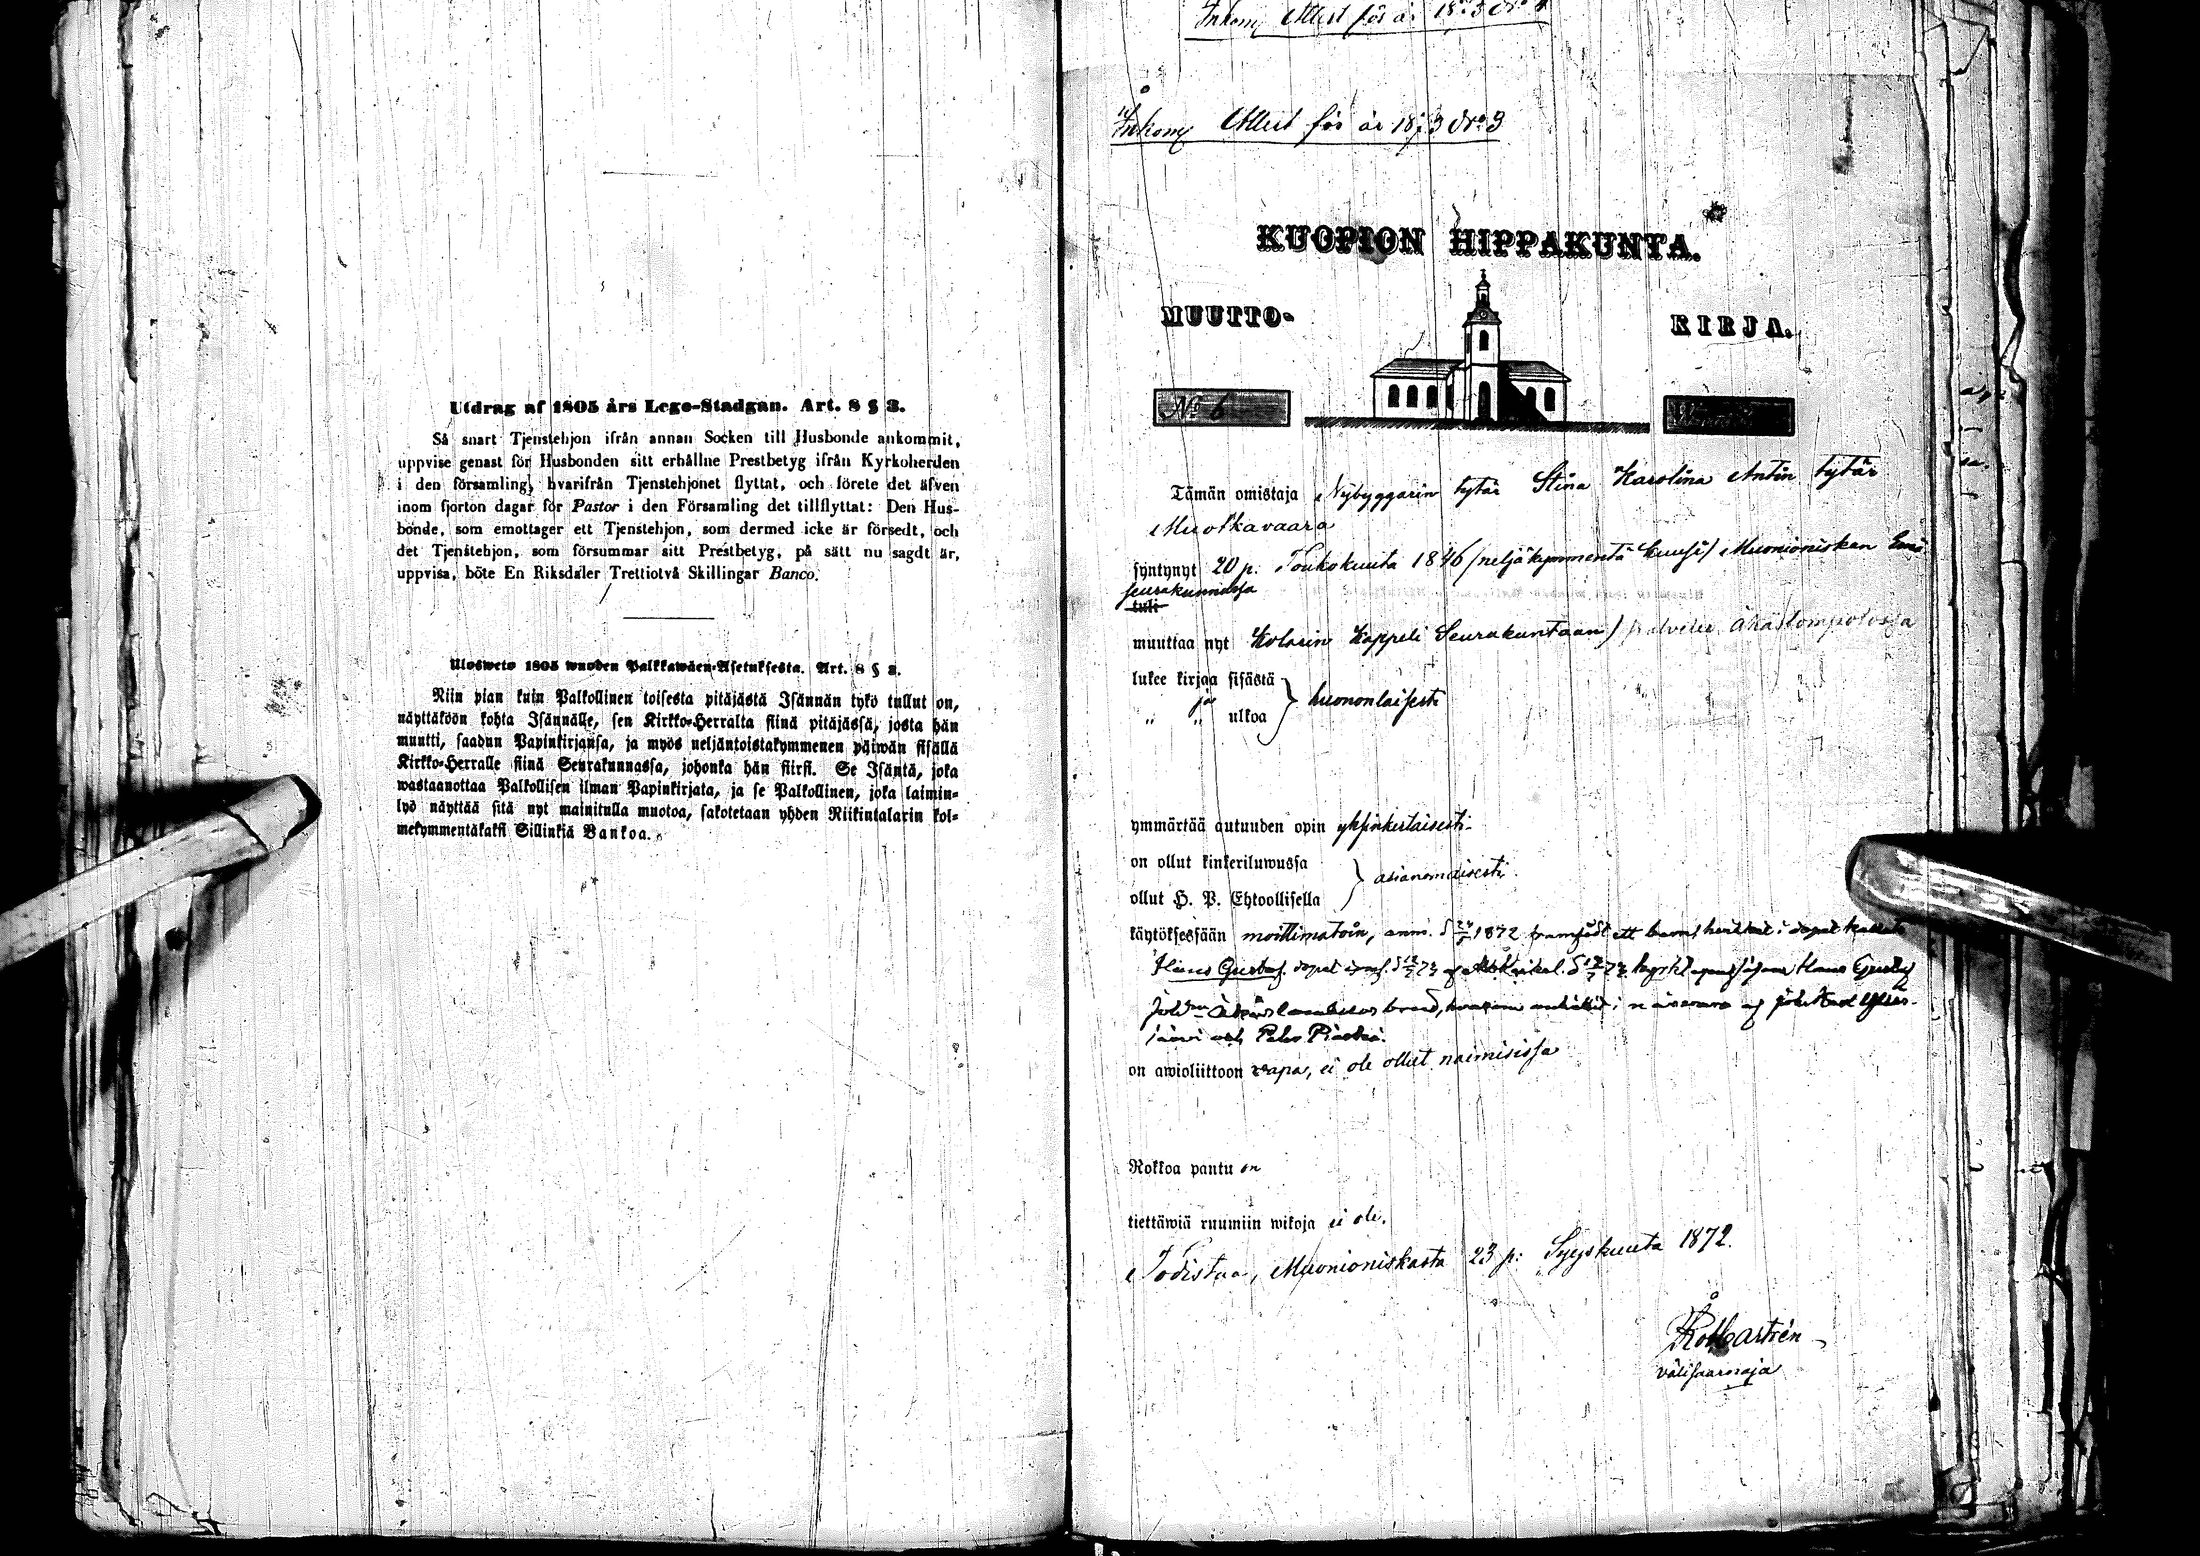 Utdrag af 1805 års Lego-Stadgan. Art. 8 § 3.
Så snart Tjenstehjon ifrån annan Socken till Husbonde ankommit,
uppvise genast för Husbonden sitt erhållne Prestbetyg ifrån Kyrkoherden
i den församling, hvarifrån Tjenstehjonet flyttat, och förete det äfven
inom fjorton dagar för Pastor i den Församling det tillflyttat: Den Hus-
bonde, som emottager ett Tjenstehjon, som dermed icke är försedt, och
det Tjenstehjon, som försummar sitt Prestbetyg, på sätt nu sagdt är,
uppvisa, böte En Riksdaler Trettiotvå Skillingar Banco.
Ulosweto 1805 wuoden Palkkawäen-Asetuksesta. Art. 8 § 3.
Niin pian kuin Palkollinen toisesta pitäjästä Isännän tykö tullut on,
näyttäköön kohta Isännälle, sen Kirkko-Herralta siinä pitäjässä, josta hän
muutti, saadun Papinkirjansa, ja myös neljäntoistakymmenen päiwän sisällä
Kirkko-Herralle siinä Seurakunnassa, johonka hän siirsi. Se Isäntä, joka
wastaanottaa Palkollisen ilman Papinkirjata, ja se Palkollinen, joka laimin-
lyö näyttää sitä nyt mainitulla muotoa, sakotetaan yhden Riikintalarin kol-
mekymmentäkaksi Sillinkiä Bankoa.
Inkom Attest för år 1873 No
Inkom Attest för år 1873 No 3
KUOPION HIPPAKUNTA.
MUUTTO- KIRJA.
No 6
Tämän omistaja Nybyggarin tytär Stina Karolina Antin tytär
Muotkavaara
syntynyt 20 p. Toukokuuta 1846 (neljäkymmentä kuusi) Muonioniskan
seurakunnassa
tuli
muuttaa nyt Kolarin Kappeli Seurakuntaan) palvelee Äkäslompolossa
lukee kirjaa sisästä
ja huononlaisesti
„ „ ulkoa
ymmärtää autuuden opin yksinkertaisesti
on ollut kinkeriluwussa
asianomaisesti
ollut H. P. Ehtoollisella
käytöksessään moittimatoin, anm. d 1872 framfödt ett barn, i dopet
Hans Gustaf. dopet Hans Gustaf
on awioliittoon vapa, ei ole ollut naimisissa
Rokkoa pantu on
tiettäwiä ruumiin wikoja ei ole.
Todistaa, Muonioniskasta 23 p: Syyskuuta 1872.
välisaarnaja